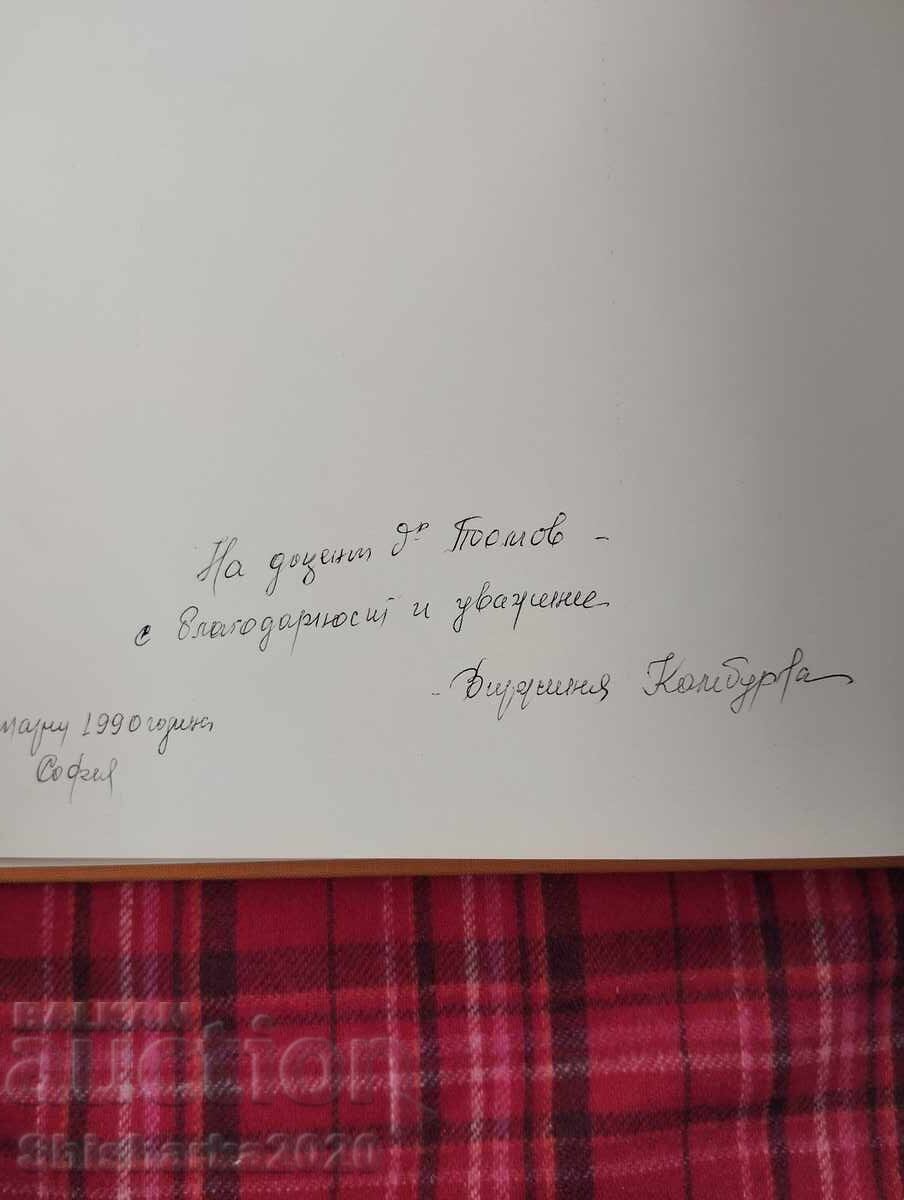 На доцент д-р Тоомов –
с благодарност и уважение
- Вирджиния Камбурова
март 1990 година
София
BALKAN
auction
Shisharka2020